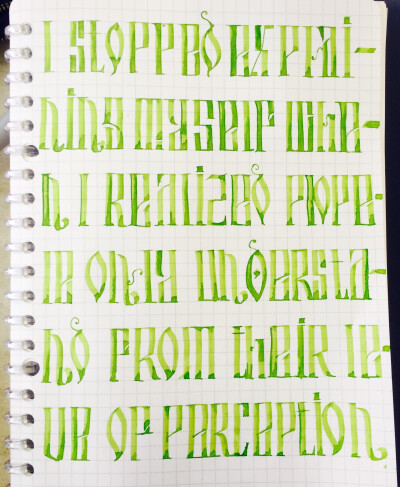 I STOPPED EXPLAI-
NING MYSELF WHE-
N I REALIZED PEOP-
LE ONLY UNDERSTA-
ND FROM THEIR LE-
VEL OF PERCEPTION